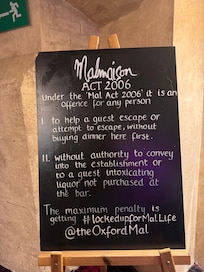 Malmaison
ACT 2006
Under the 'Mal Act 2006' it is an
offence for any person
I. to help a guest escape or
attempt to escape, without
buying dinner here first.
II. without authority to convey
into the establishment or
to a guest intoxicating
liquor not purchased at
the bar.
The maximum penalty is
getting #lockedupforMalLife
@theOxfordMal